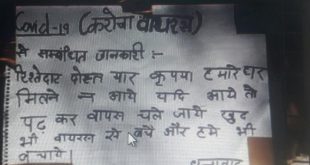 Covid-19 (करोना वायरस)
से सम्बंधित जानकारी :-
रिश्तेदार दोस्त यार कृपया हमारे घर
मिलने न आये यदि आये तो
पढ़ कर वापस चले जाये खुद
भी वायरस से बचें और हमें भी
बचाये
धन्यवाद